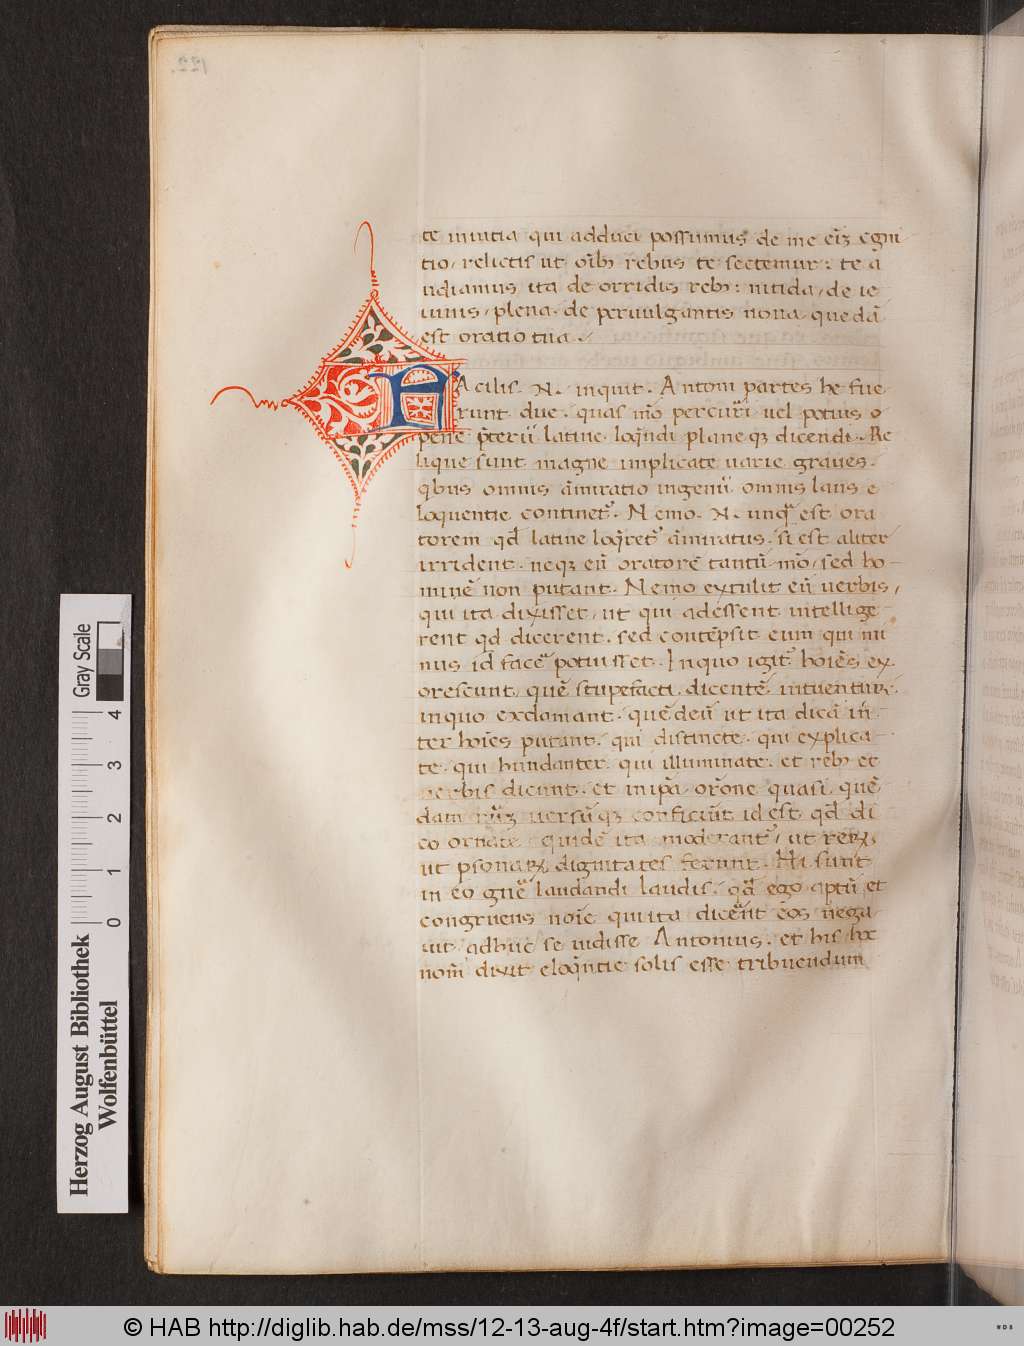 te inuitia qui adduci possumus de me eiꝫ cgni
tio, relictis ut oib; rebus te sectemur: te a
udiamus ita de orridis reb;: nitida, de ie
iunis, plena, de peruulgantis noua quedā
est oratio tua.
Acilis .N. inquit. Antoni partes he fue
runt due. quas mō percurri uel potius
pene p̄terii latine loq̄ndi planeqꝫ dicendi. Re
lique sunt magne implicate uarie graues.
qbus omnis ām̄iratio ingenii omnis laus e
loquentie continet᷑. Nemo. N. unq̄ est ora
torem qd̄ latine loq̄ret᷑ ām̄iratus. si est aliter
irrident. neqꝫ eū oratorē tantū mō, sed ho
minē non putant. Nemo extulit eū uerbis,
qui ita dixisset, ut qui adessent intellige
rent qd̄ dicerent. sed contēpsit eum qui mi
nus id face᷑ potuisset. Inquo igit᷑ hoies ex
orescunt, quē stupefacti dicentē intuentur.
inquo exclamant. quē deū ut ita dicā in̄
ter hoies putant. qui distincte. qui explica
te. qui hundanter. qui illuminate. et reb; et
uerbis dicunt. et inipā orōne quasi quē
dam uersūqꝫ conficiūt id est qd̄ di
co ornate quidē ita moderant᷑, ut reꝝ,
ut psonaꝝ dignitates ferunt. Hi sunt
in eo gn̄e laudandi laudis. qd̄ ego aptū et
congruens noīe qui ita dicēnt eos nega
uit adhuc se uidisse Antonius. et his hoc
nom̄ dixit eloq̄ntie solis esse tribuendum
Herzog August Bibliothek
Wolfenbüttel
0 1 2 3 4
Gray Scale
© HAB http://diglib.hab.de/mss/12-13-aug-4f/start.htm?image=00252